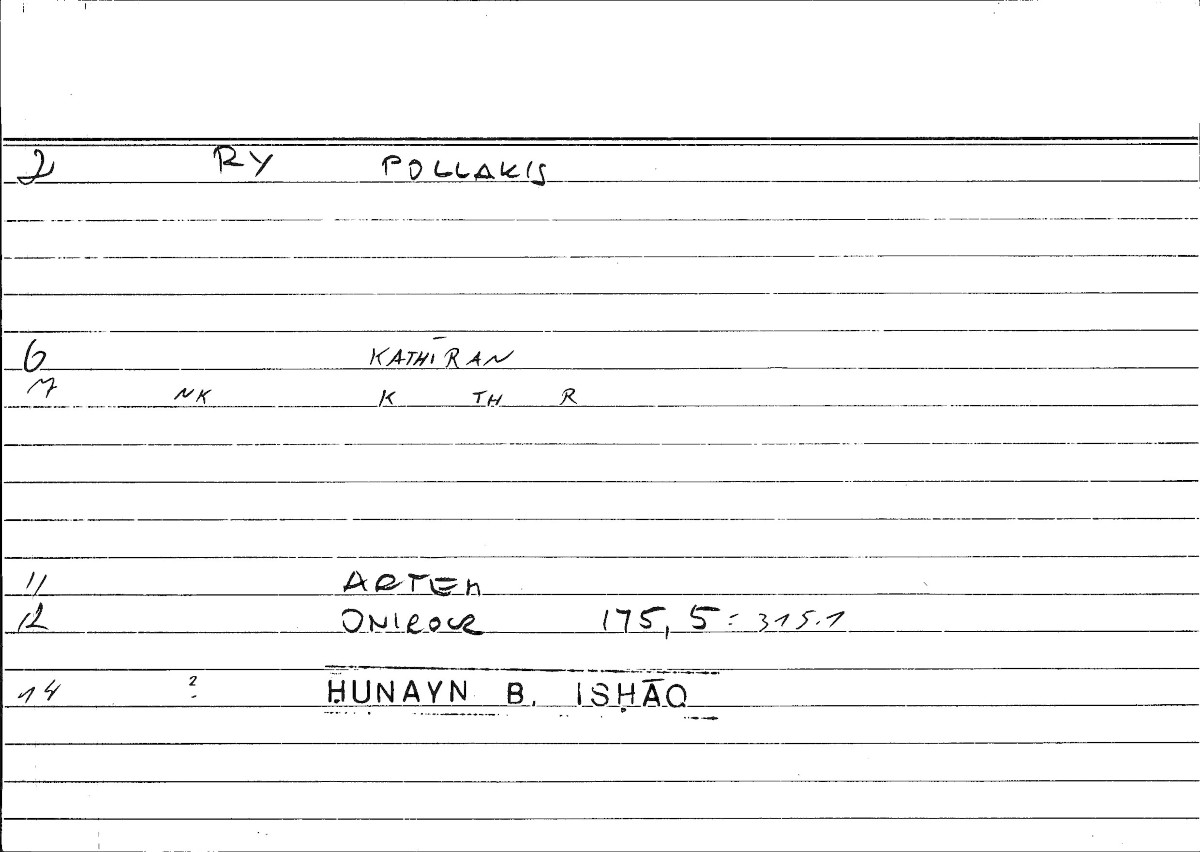 2 RY POLLAKIS
6 KATHĪRAN
7 NK K TH R
11 ARTEM
12 ONIROCR 175, 5 = 315.1
14 2 ḤUNAYN B. ISḤĀQ